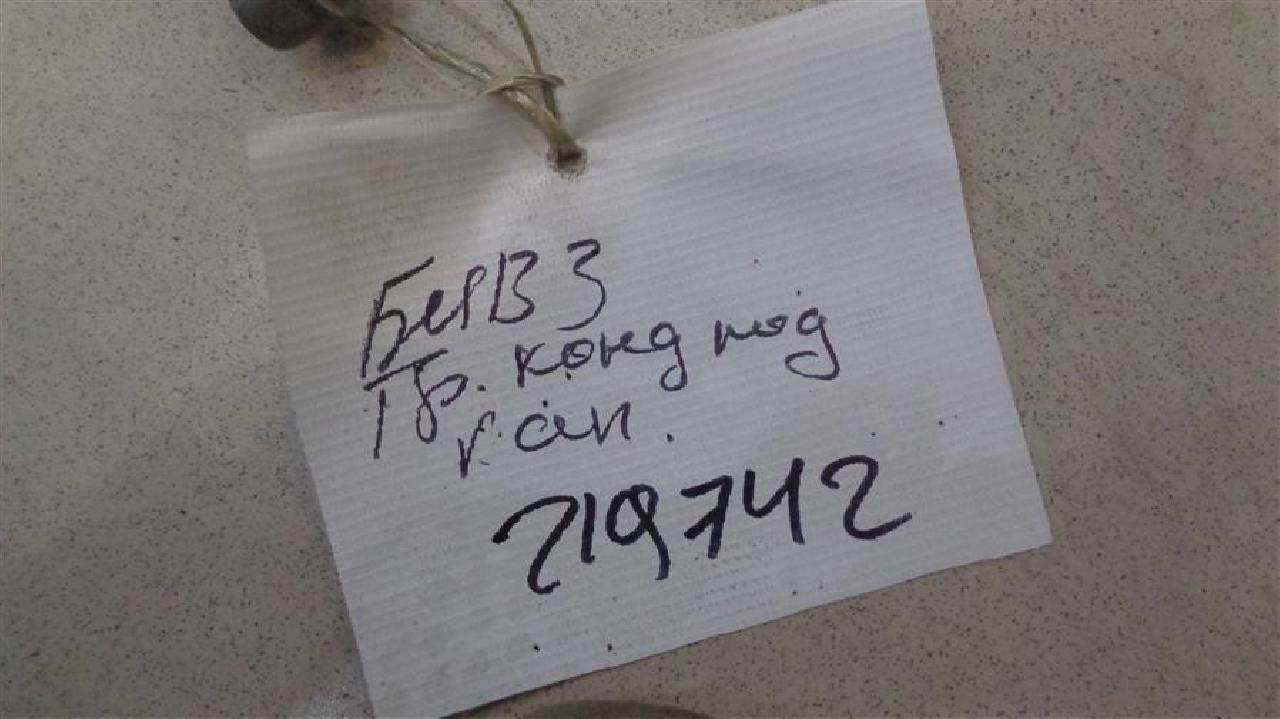 Тр. конд под
кап.
219742